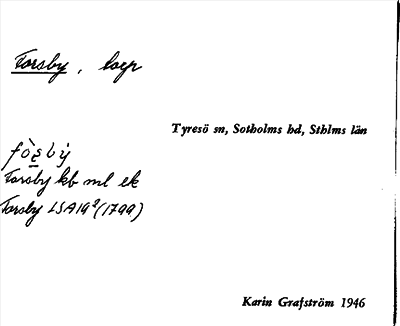 Forsby, torp
Tyresö sn, Sotholms hd, Sthlms län
fò̀s̠bỳ
Forsby kb ml ek
Forsby LSA19²(1799)
Karin Grafström 1946